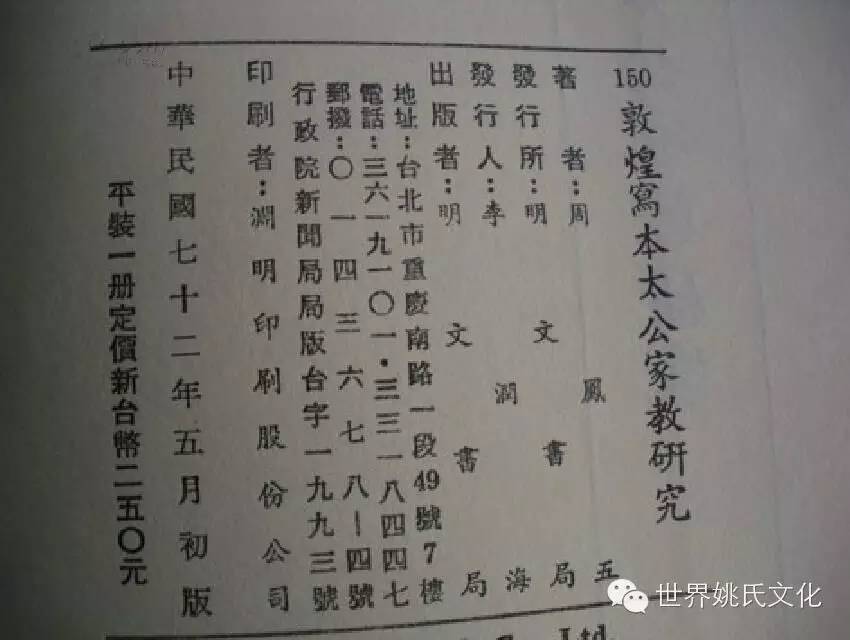 150 敦煌寫本太公家教研究
著者：周鳳五
發行所：明文書局
發行人：李潤海
出版者：明文書局
地址：台北市重慶南路一段49號7樓
電話：三六一九一〇一·三三一八四四七
郵撥：〇一四三六七八—四號
行政院新聞局局版台字一九九三號
印刷者：淵明印刷股份公司
中華民國七十二年五月初版
平裝一册定價新台幣二五〇元
Ltd.
世界姚氏文化